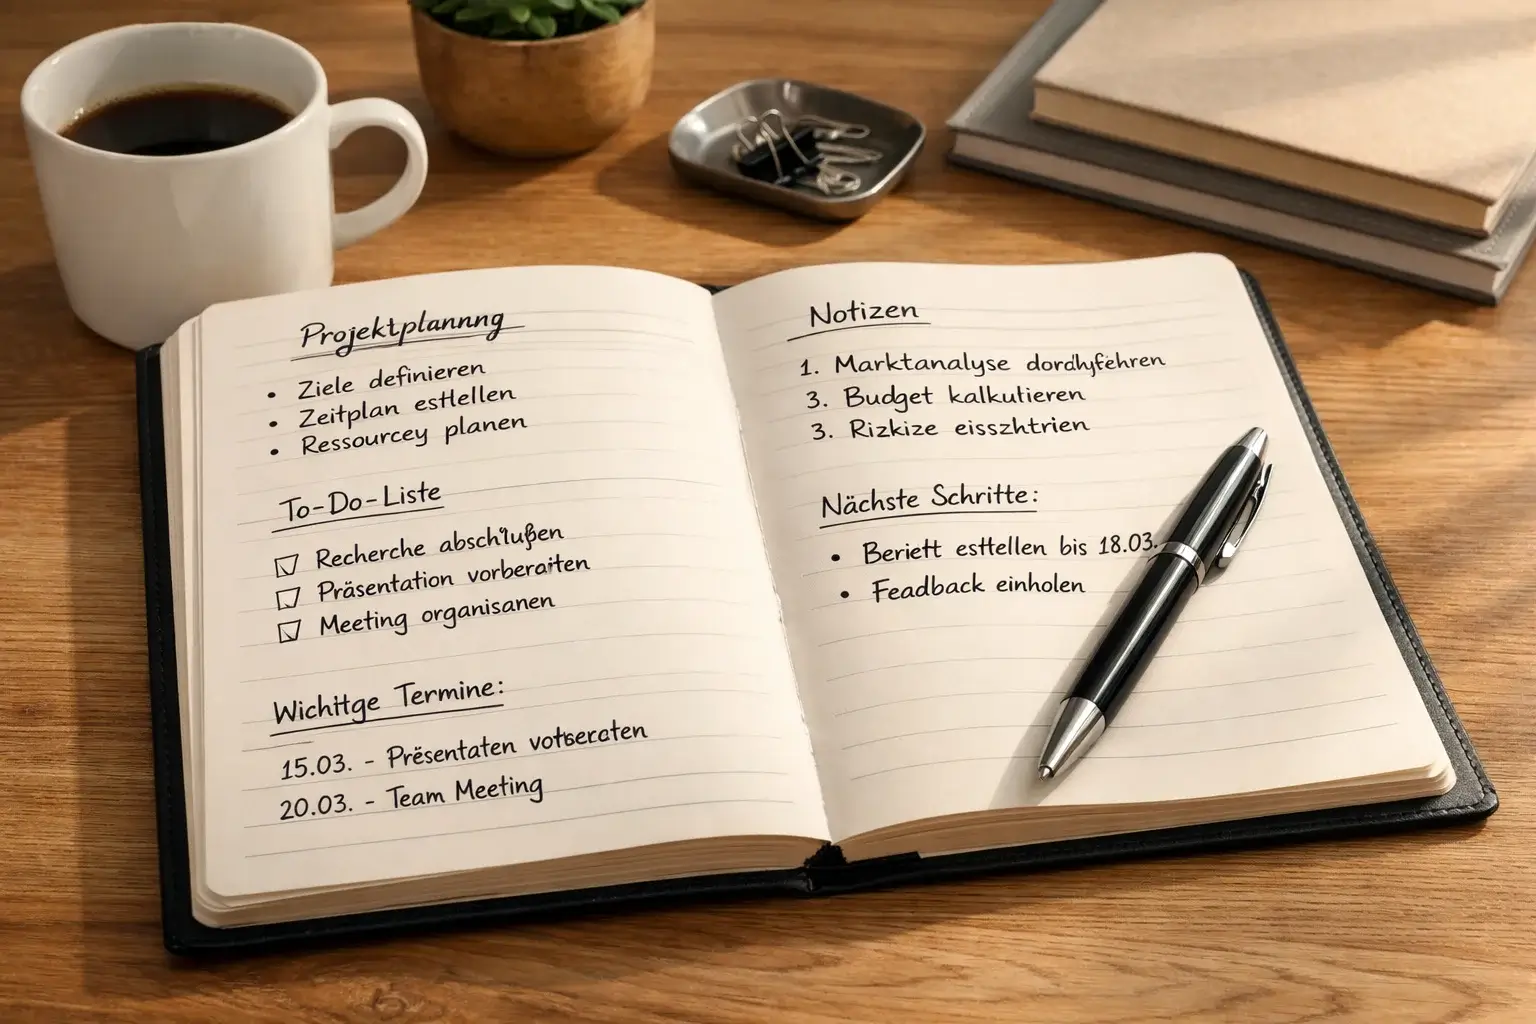 Projektplannng
• Ziele definieren
• Zeitplan estlellen
• Ressourcey planen
To-Do-Liste
Recherche abschlußen
Präsentation vorberaiten
Meeting organisanen
Wichitge Termine:
15.03. - Prësentaten
20.03. - Team Meeting
Notizen
1. Marktanalyse
3. Budget kalkutieren
3. Rizkize eisszhtrien
Nächste Schritte:
• Beriett esttellen bis 18.03.
• Feadback einholen